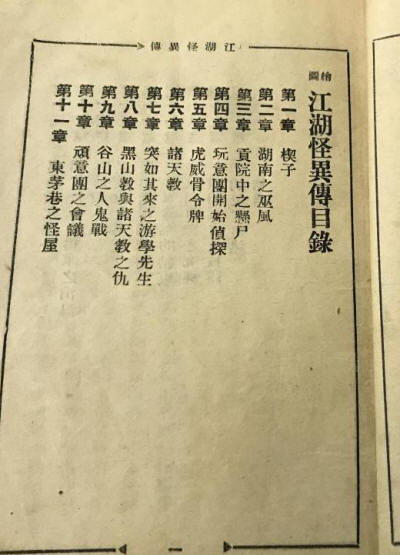 江湖怪異傳
繪圖 江湖怪異傳目錄
第一章 楔子
第二章 湖南之巫風
第三章 貢院中之懸尸
第四章 玩意團開始偵探
第五章 虎威骨令牌
第六章 諸天教
第七章 突如其來之游學先生
第八章 黑山教與諸天教之仇
第九章 谷山之人鬼戰
第十章 頑意團之會議
第十一章 東茅巷之怪屋
一